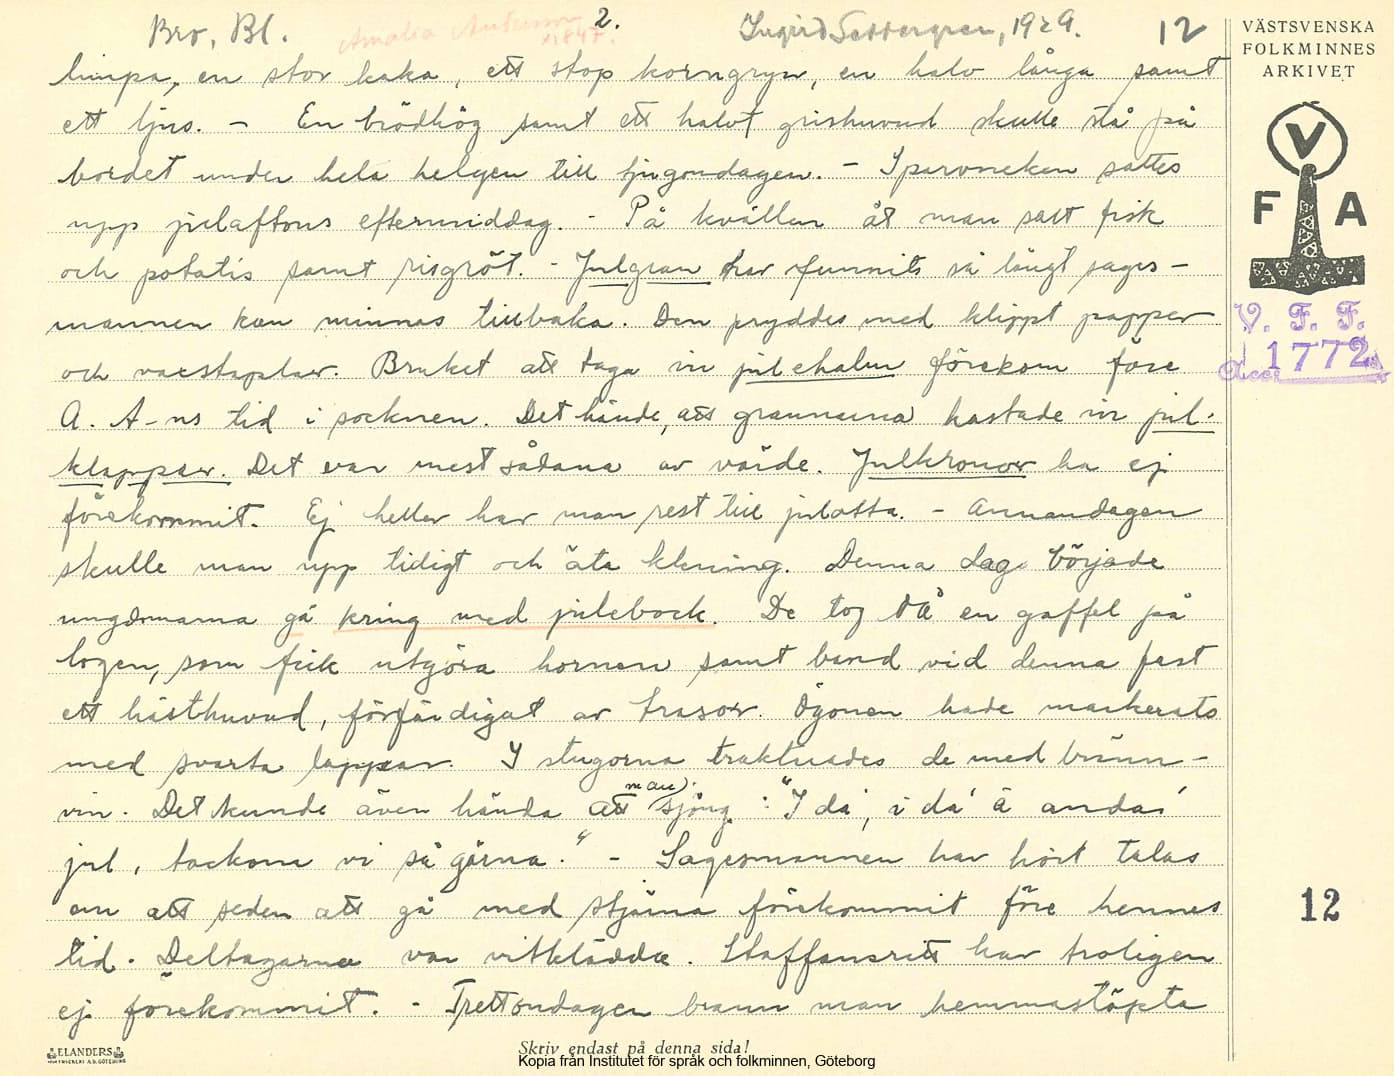 Bro, Bl.
2.
Ingird Settergren, 1929.
12
VÄSTSVENSKA
FOLKMINNES
ARKIVET
Amalia Anderson
*1847.
limpa, en stor kaka, ett stop korngryn, en halv långa samt
ett ljus. - En brödhög samt ett halvt grishuvud skulle stå på
bordet under hela helgen till tjugondagen. - Sparvneken sattes
upp julaftons eftermiddag. - På kvällen åt man salt fisk
och potatis samt risgröt. - Julgran har funnits så långt sages-
mannen kan minnas tillbaka. Den pryddes med klippt papper
och vaxstaplar. Bruket att taga in julehalm förekom före
A. A-ns tid i socknen. Det hände, att grannarna kastade in jul-
klappar. Det var mest sådana av värde. Julkronor ha ej
förekommit. Ej heller har man rest till julotta. - Annandagen
skulle man upp tidigt och äta klening. Denna dag började
ungdomarna gå kring med julebock. De tog då en gaffel på
logen, som fick utgöra hornen samt band vid denna fast
ett hästhuvud, förfärdigat av trasor. Ögonen hade markerats
med svarta lappar. I stugorna traktuades de med bränn-
vin. Det kunde även hända att man sjöng: "I da', i da' ä anda'
jul, tackom vi så gärna." - Sagesmannen har hört talas
om att seden att gå med stjärna förekommit före hennes
tid. Deltagarna var vitklädda. Staffansritt har troligen
ej förekommit. - Trettondagen brann man hemmastöpta
V
F A
V. F. F.
Acc. 1772
12
ELANDERS
Skriv endast på denna sida!
Kopia från Institutet för språk och folkminnen, Göteborg